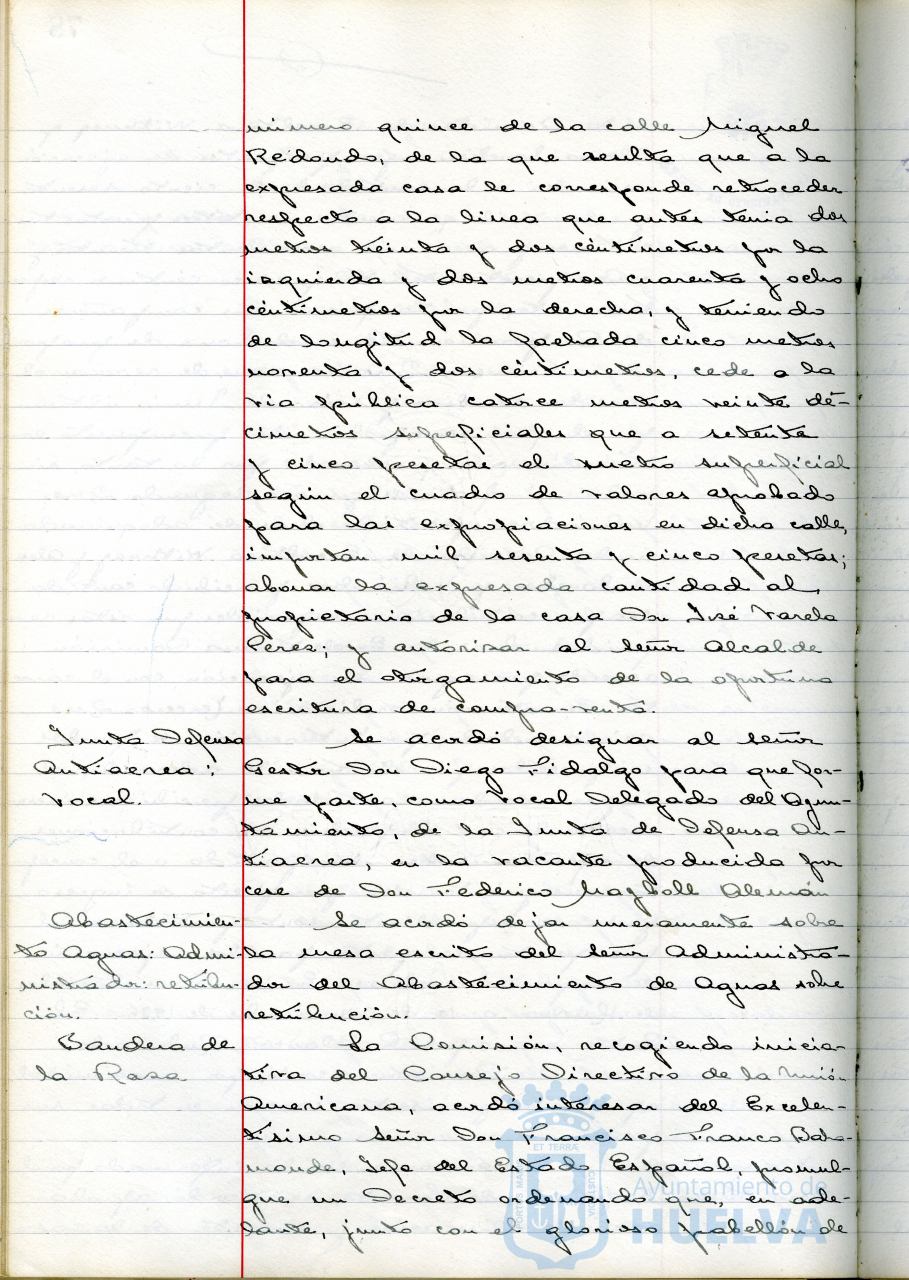 número quince de la calle Miguel
Redondo, de la que resulta que a la
expresada casa le corresponde retroceder
respecto a la línea que antes tenía dos
metros treinta y dos céntimetros por la
izquierda y dos metros cuarenta y ocho
céntimetros por la derecha, y teniendo
de longitud la fachada cinco metros
noventa y dos céntimetros, cede a la
vía pública catorce metros veinte dé-
cimetros superficiales que a setenta
y cinco pesetas el metro superficial
según el cuadro de valores aprobado
para las expropiaciones en dicha calle,
importan mil sesenta y cinco pesetas;
abonar la expresada cantidad al
propietario de la casa Don José Varela
Perez; y autorizar al señor Alcalde
para el otorgamiento de la oportuna
escritura de compra-venta.
Junta Defensa
Antiaerea:
Vocal.
Se acordó designar al señor
Gestor Don Diego Fidalgo para que for-
me parte, como Vocal Delegado del Ayun-
tamiento, de la Junta de Defensa An-
tiaerea, en la vacante producida por
cese de Don Federico Alemán
Abastecimien-
to Aguas: Admi-
nistrador: retribu-
ción.
Se acordó dejar nuevamente sobre
la mesa escrito del señor Administra-
dor del Abastecimiento de Aguas sobre
retribución.
Bandera de
la Raza
La Comisión, recogiendo inicia-
tiva del Consejo Directivo de la Unión
Americana, acordó interesar del Excelen-
tísimo Señor Don Francisco Franco Baha-
monde, Jefe del Estado Español, promul-
gue un Decreto ordenando que, en ade-
lante, junto con el glorioso pabellón de
Ayuntamiento de
HUELVA